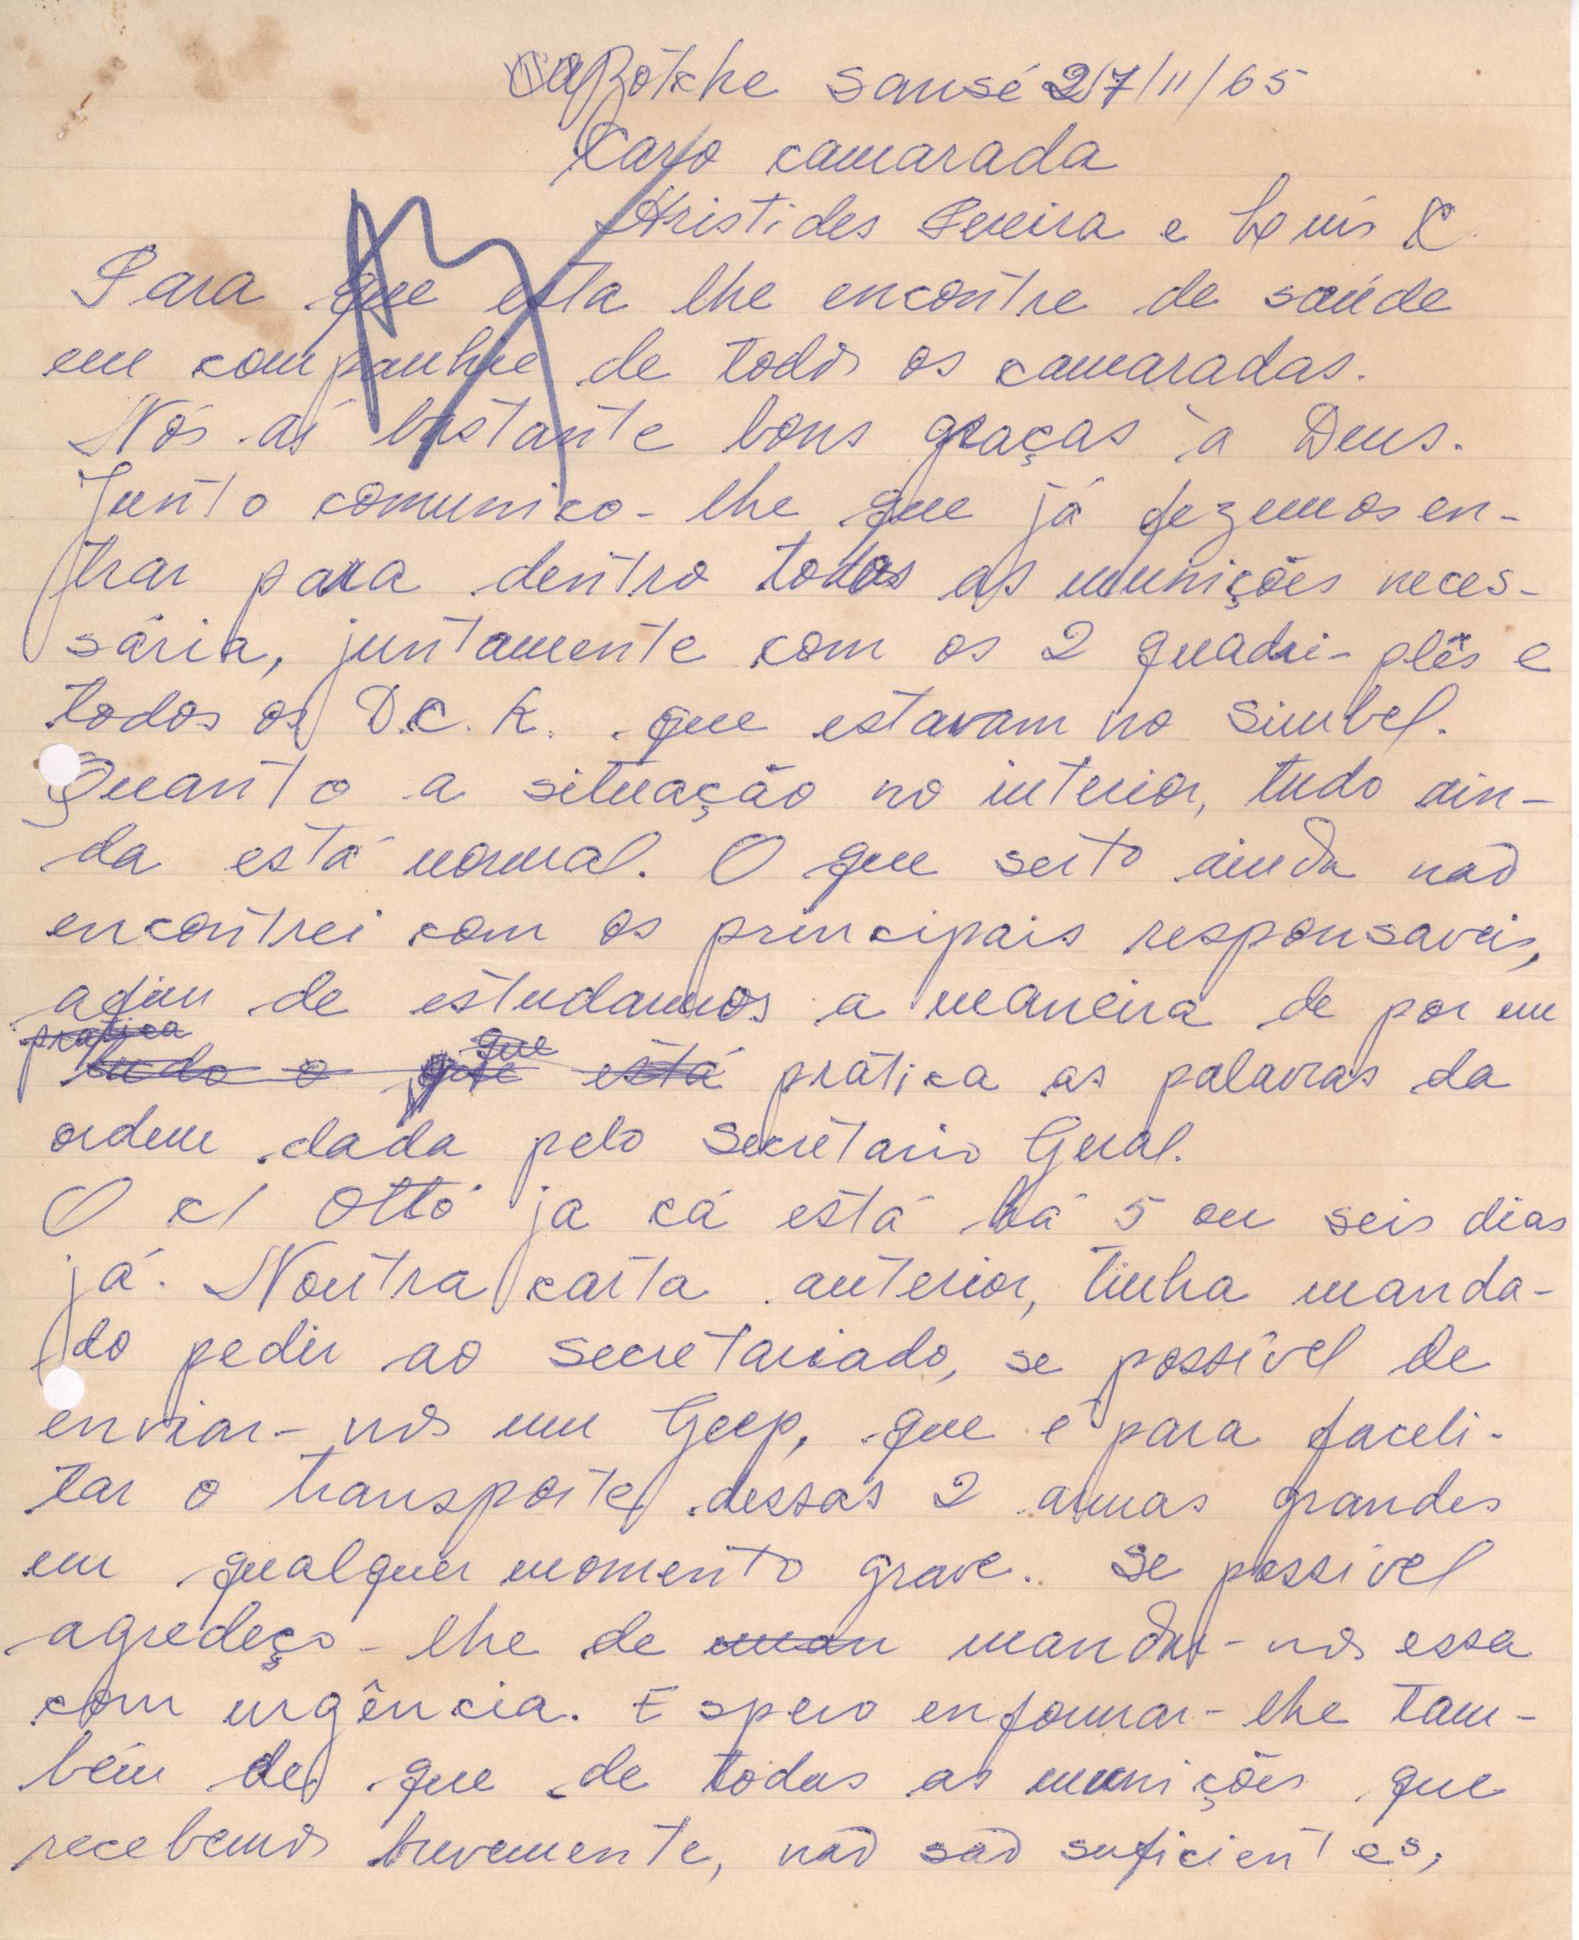 Botche Sansé 27/11/65
Caro camarada
Aristides Pereira e Luís C.
Para que esta lhe encontre de saúde
em companhia de todos os camaradas.
Nós aí bastante bons graças à Deus.
Junto comunico-lhe que já fezemos en-
trar para dentro todas as munições neces-
sária, juntamente com os 2 quadri-plés e
todos os D.C.K. que estavam no Simbel.
Quanto a situação no interior, tudo ain-
da está normal. O que serto ainda não
encontrei com os principais responsaveis,
afim de estudamos a maneira de por em
pratica
tudo o que que está prática as palavras da
ordem dada pelo Secretario Geral.
O c/ Ottó ja cá está há 5 ou seis dias
já. Noutra carta anterior, tinha manda-
do pedir ao secretariado, se possível de
enviar-nos um Geep, que é para faceli-
tar o transporte dessas 2 armas grandes
em qualquer momento grave. Se possível
agredeço-lhe de man mandar-nos essa
com urgência. Espero enformar-lhe tam-
bém de que de todas as munições que
recebemos brevemente, não são suficientes,